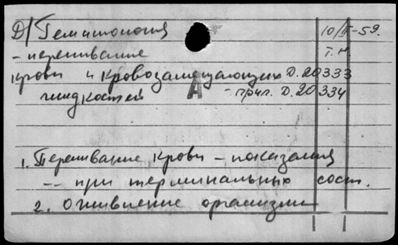 Д/ Гематология 10/II-59.
- переливание Т.М
крови и кровозамещающих Д.20333
жидкостей А - прил. Д.20334
1. Переливание крови - показания
-- при терминальных сост.
2. Оживление организма